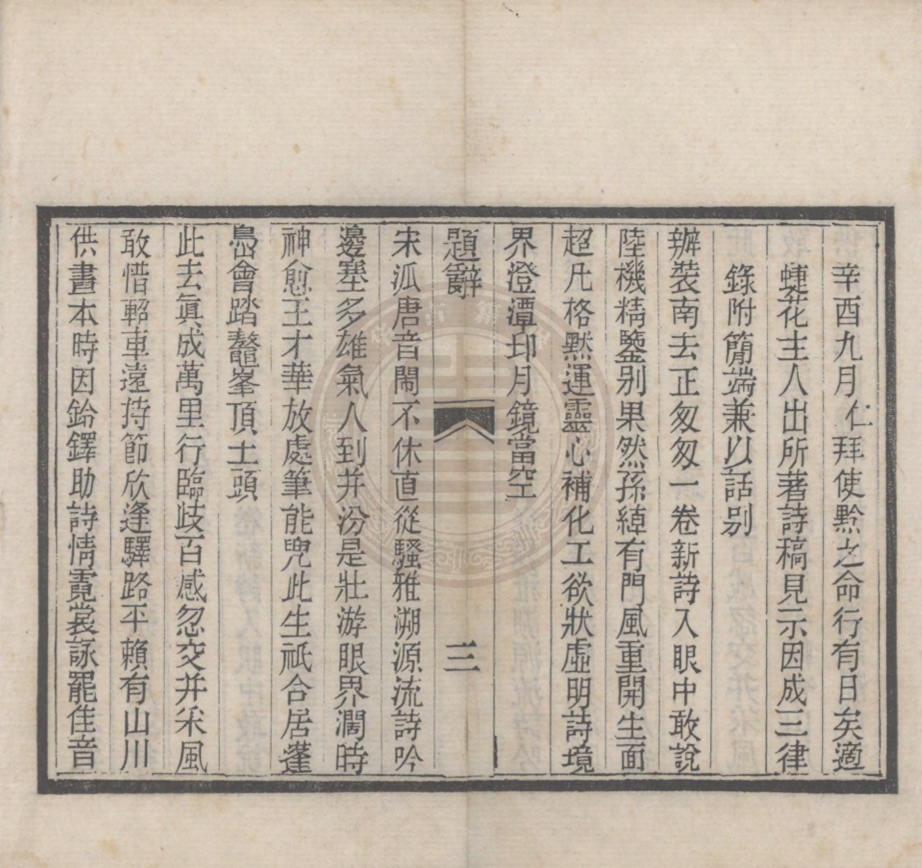 辛酉九月仁拜使黔之命行有日矣適
蝶花主人出所著詩稿見示因成三律
錄附簡端兼以話別
辦裝南去正匆匆一卷新詩入眼中敢說
陸機精鑒別果然孫綽有門風重開生面
超凡格默運靈心補化工欲狀虛明詩境
界澄潭印月鏡當空
題辭
三
宋派唐音鬧不休直從騷雅溯源流詩吟
邊塞多雄氣人到并汾是壯游眼界濶時
神愈王才華放處筆能兜此生祗合居蓬
島會踏鼇峯頂上頭
此去眞成萬里行臨歧百感忽交并采風
敢惜軺車遠持節欣逢驛路平賴有山川
供畫本時因鈴鐸助詩情霓裳詠罷佳音